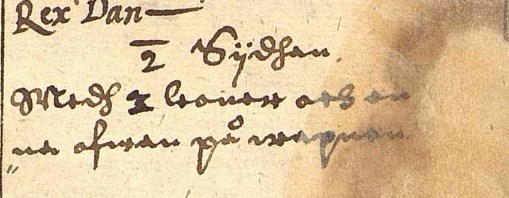 Rex Dan
2 Sijdhan.
Medh 2 leoner och en
na ofwan på wapnen